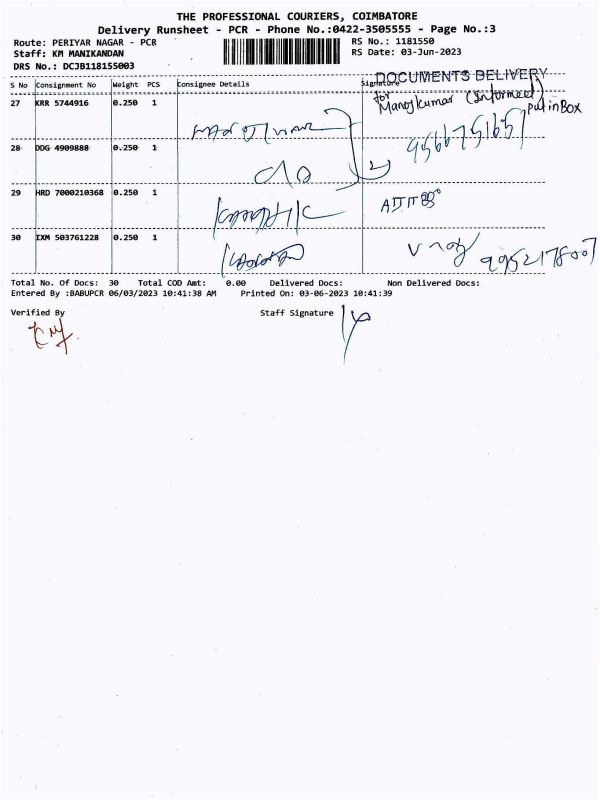 THE PROFESSIONAL COURIERS, COIMBATORE
Delivery Runsheet - PCR - Phone No.:0422-3505555 - Page No.:3
Route: PERIYAR NAGAR - PCR
RS No.: 1181550
Staff: KM MANIKANDAN
RS Date: 03-Jun-2023
DRS No.: DCJB118155003
S No Consignment No Weight PCS Consignee Details Signature
DOCUMENTS DELIVERY
for
Manojkumar (Informed)
put in Box
27 KRR 5744916 0.250 1
28 DDG 4909888 0.250 1
29 HRD 7000210368 0.250 1
30 IXM 503761228 0.250 1
9952178007
Total No. Of Docs: 30 Total COD Amt: 0.00 Delivered Docs: Non Delivered Docs:
Entered By :BABUPCR 06/03/2023 10:41:38 AM Printed On: 03-06-2023 10:41:39
Verified By Staff Signature